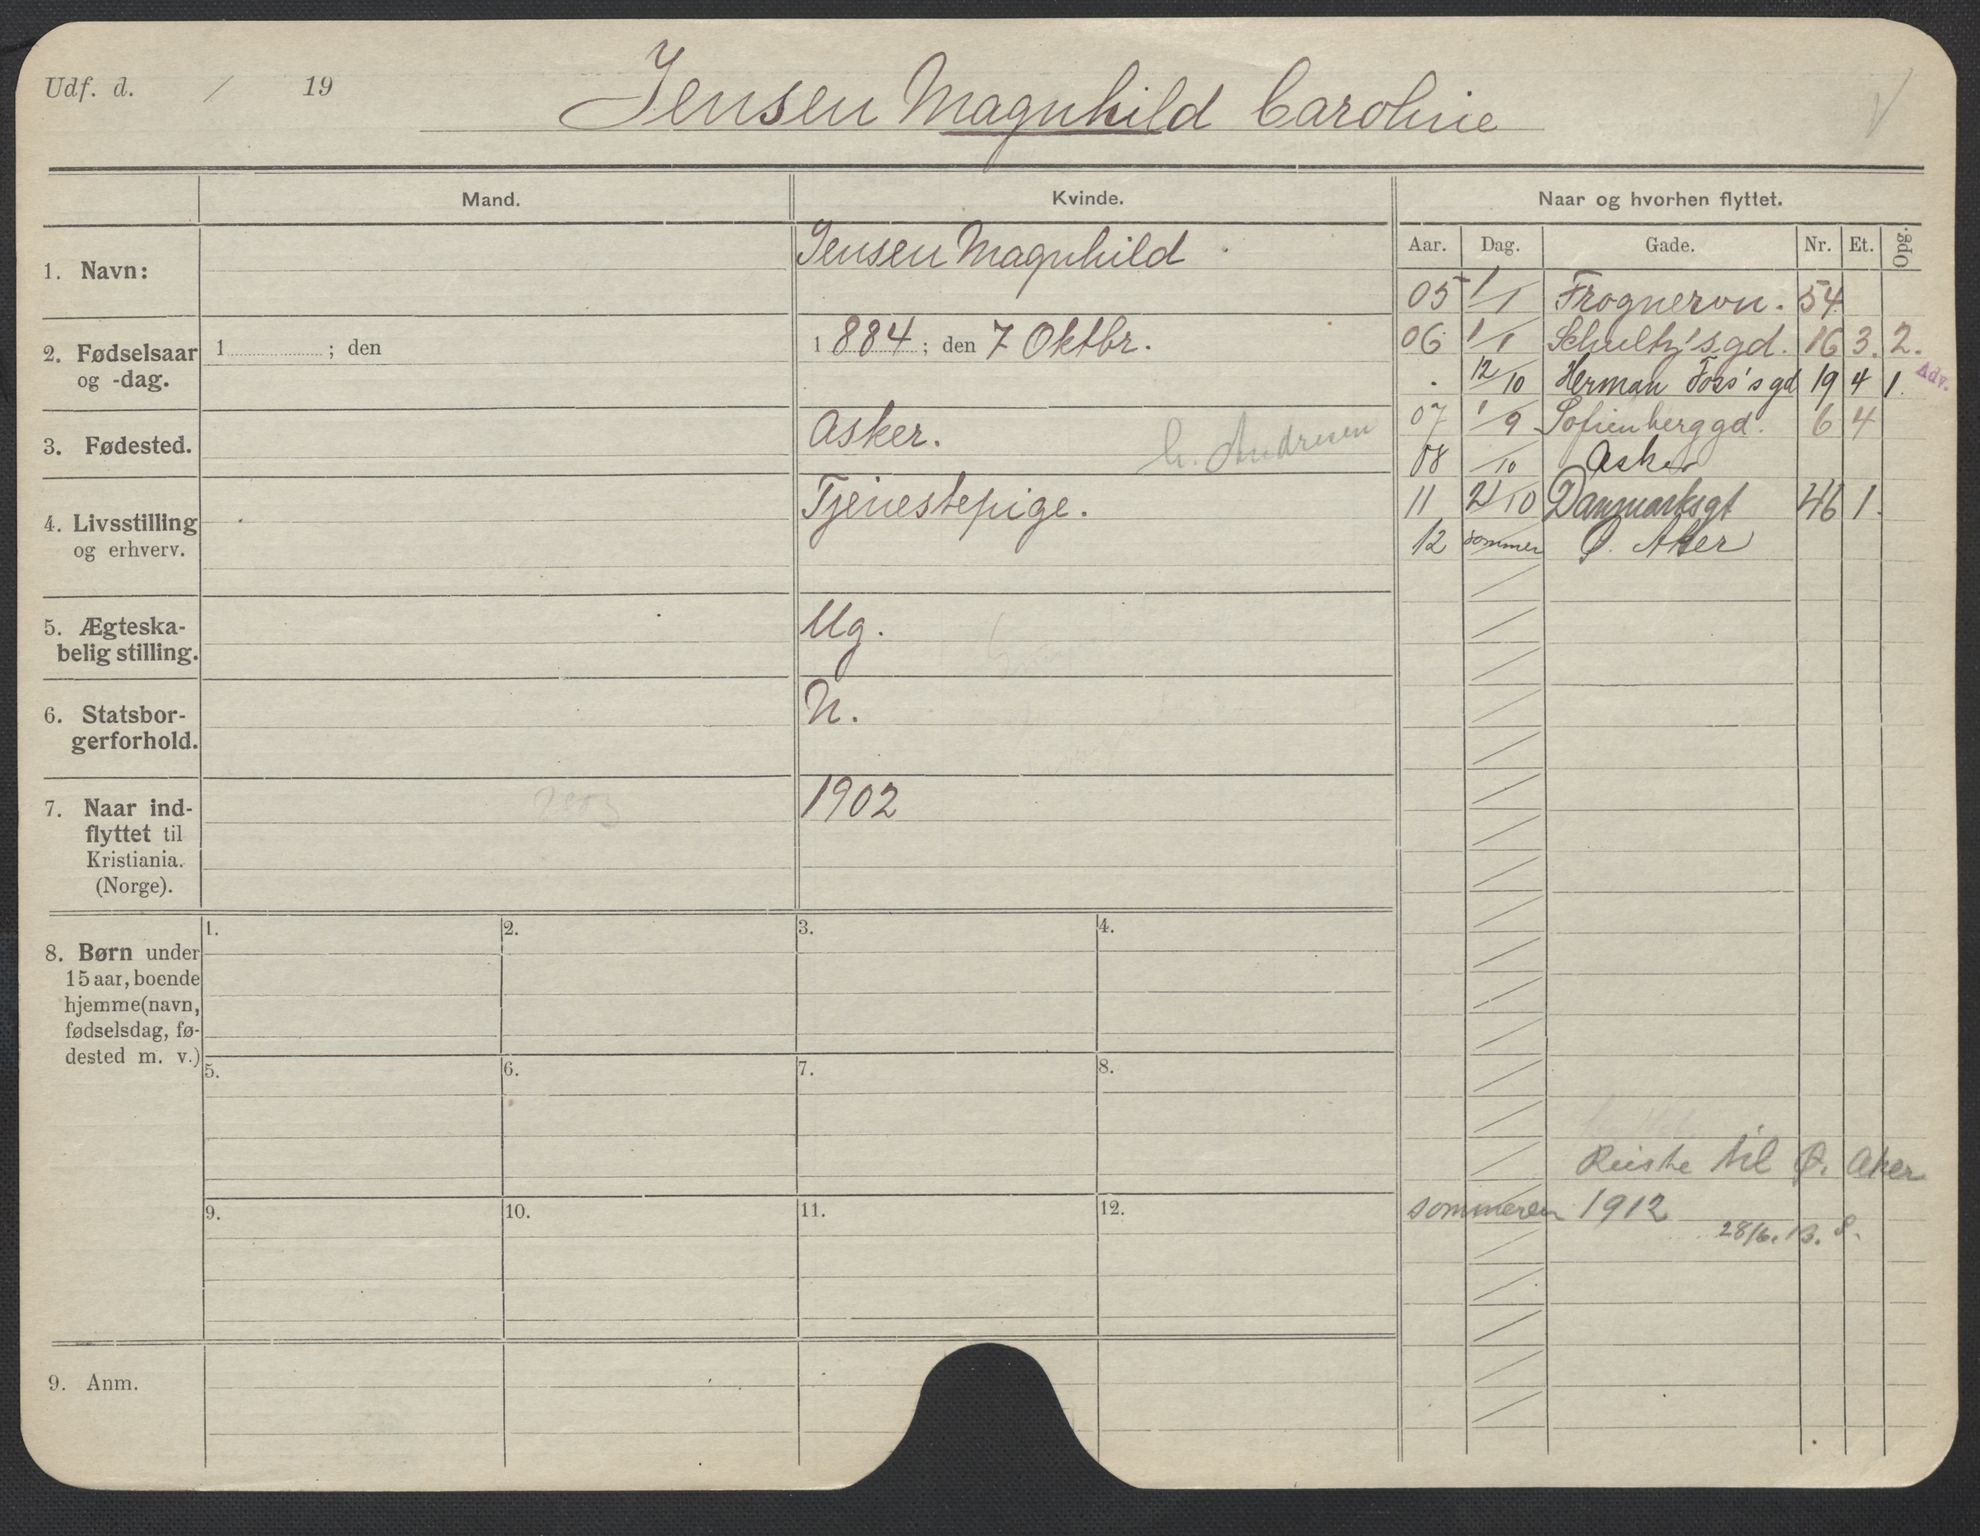 Udf. d. / 19
Jensen Magnhild Caroline
Mand.
Kvinde.
Naar og hvorhen flyttet.
Aar. Dag. Gade. Nr. Et. Opg.
1. Navn:
Jensen Magnhild
2. Fødselsaar
og -dag.
1 ; den
1 884 ; den 7 Oktbr.
3. Fødested.
Asker.
Andresen
4. Livsstilling
og erhverv.
Tjenestepige.
5. Ægteska-
belig stilling.
Ug.
6. Statsbor-
gerforhold.
N.
7. Naar ind-
flyttet til
Kristiania.
(Norge).
1902
05 1/1 Frognervn. 54
06 1/1 Schultz'sgd. 16 3. 2.
. 12/10 Herman Foss's gd 19 4 1. Adv.
07 1/9 Sofienberggd. 6 4
08 /10 Asker
11 21/10 Danmarksgt 46 1.
12 sommer Ø. Aker
Reiste til Ø. Aker
sommeren 1912
28/6. 13. S.
8. Børn under
15 aar, boende
hjemme (navn,
fødselsdag, fø-
dested m. v.)
1. 2. 3. 4.
5. 6. 7. 8.
9. 10. 11. 12.
9. Anm.